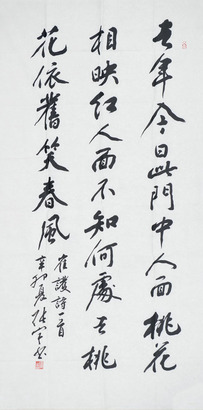 去年今日此門中人面桃花
相映红人面不知何處去桃
花依舊笑春風
崔護詩一首
辛卯夏